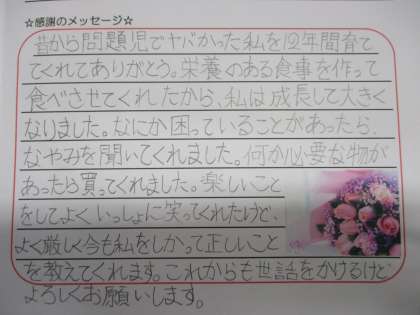 ☆感謝のメッセージ☆
昔から問題児でヤバかった私を12年間育て
てくれてありがとう。栄養のある食事を作って
食べさせてくれたから、私は成長して大きく
なりました。なにか困っていることがあったら、
なやみを聞いてくれました。何か必要な物が
あったら買ってくれました。楽しいこと
をして、よく、いっしょに笑ってくれたけど、
よく厳しく今も私をしかって正しいこと
を教えてくれます。これからも世話をかけるけど
よろしくお願いします。